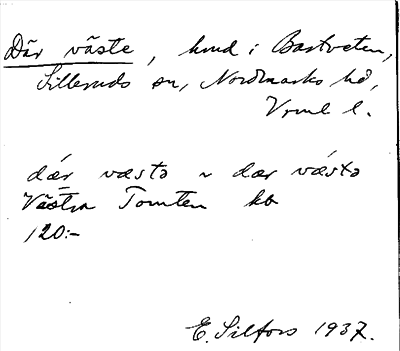 Där väste, hmd i Bastveten,
Silleruds sn, Nordmarks hd,
Vrml l.
dǽr væstə ~ dær vǽstə
Västra Tomten kb
120:-
E. Silfors 1937.